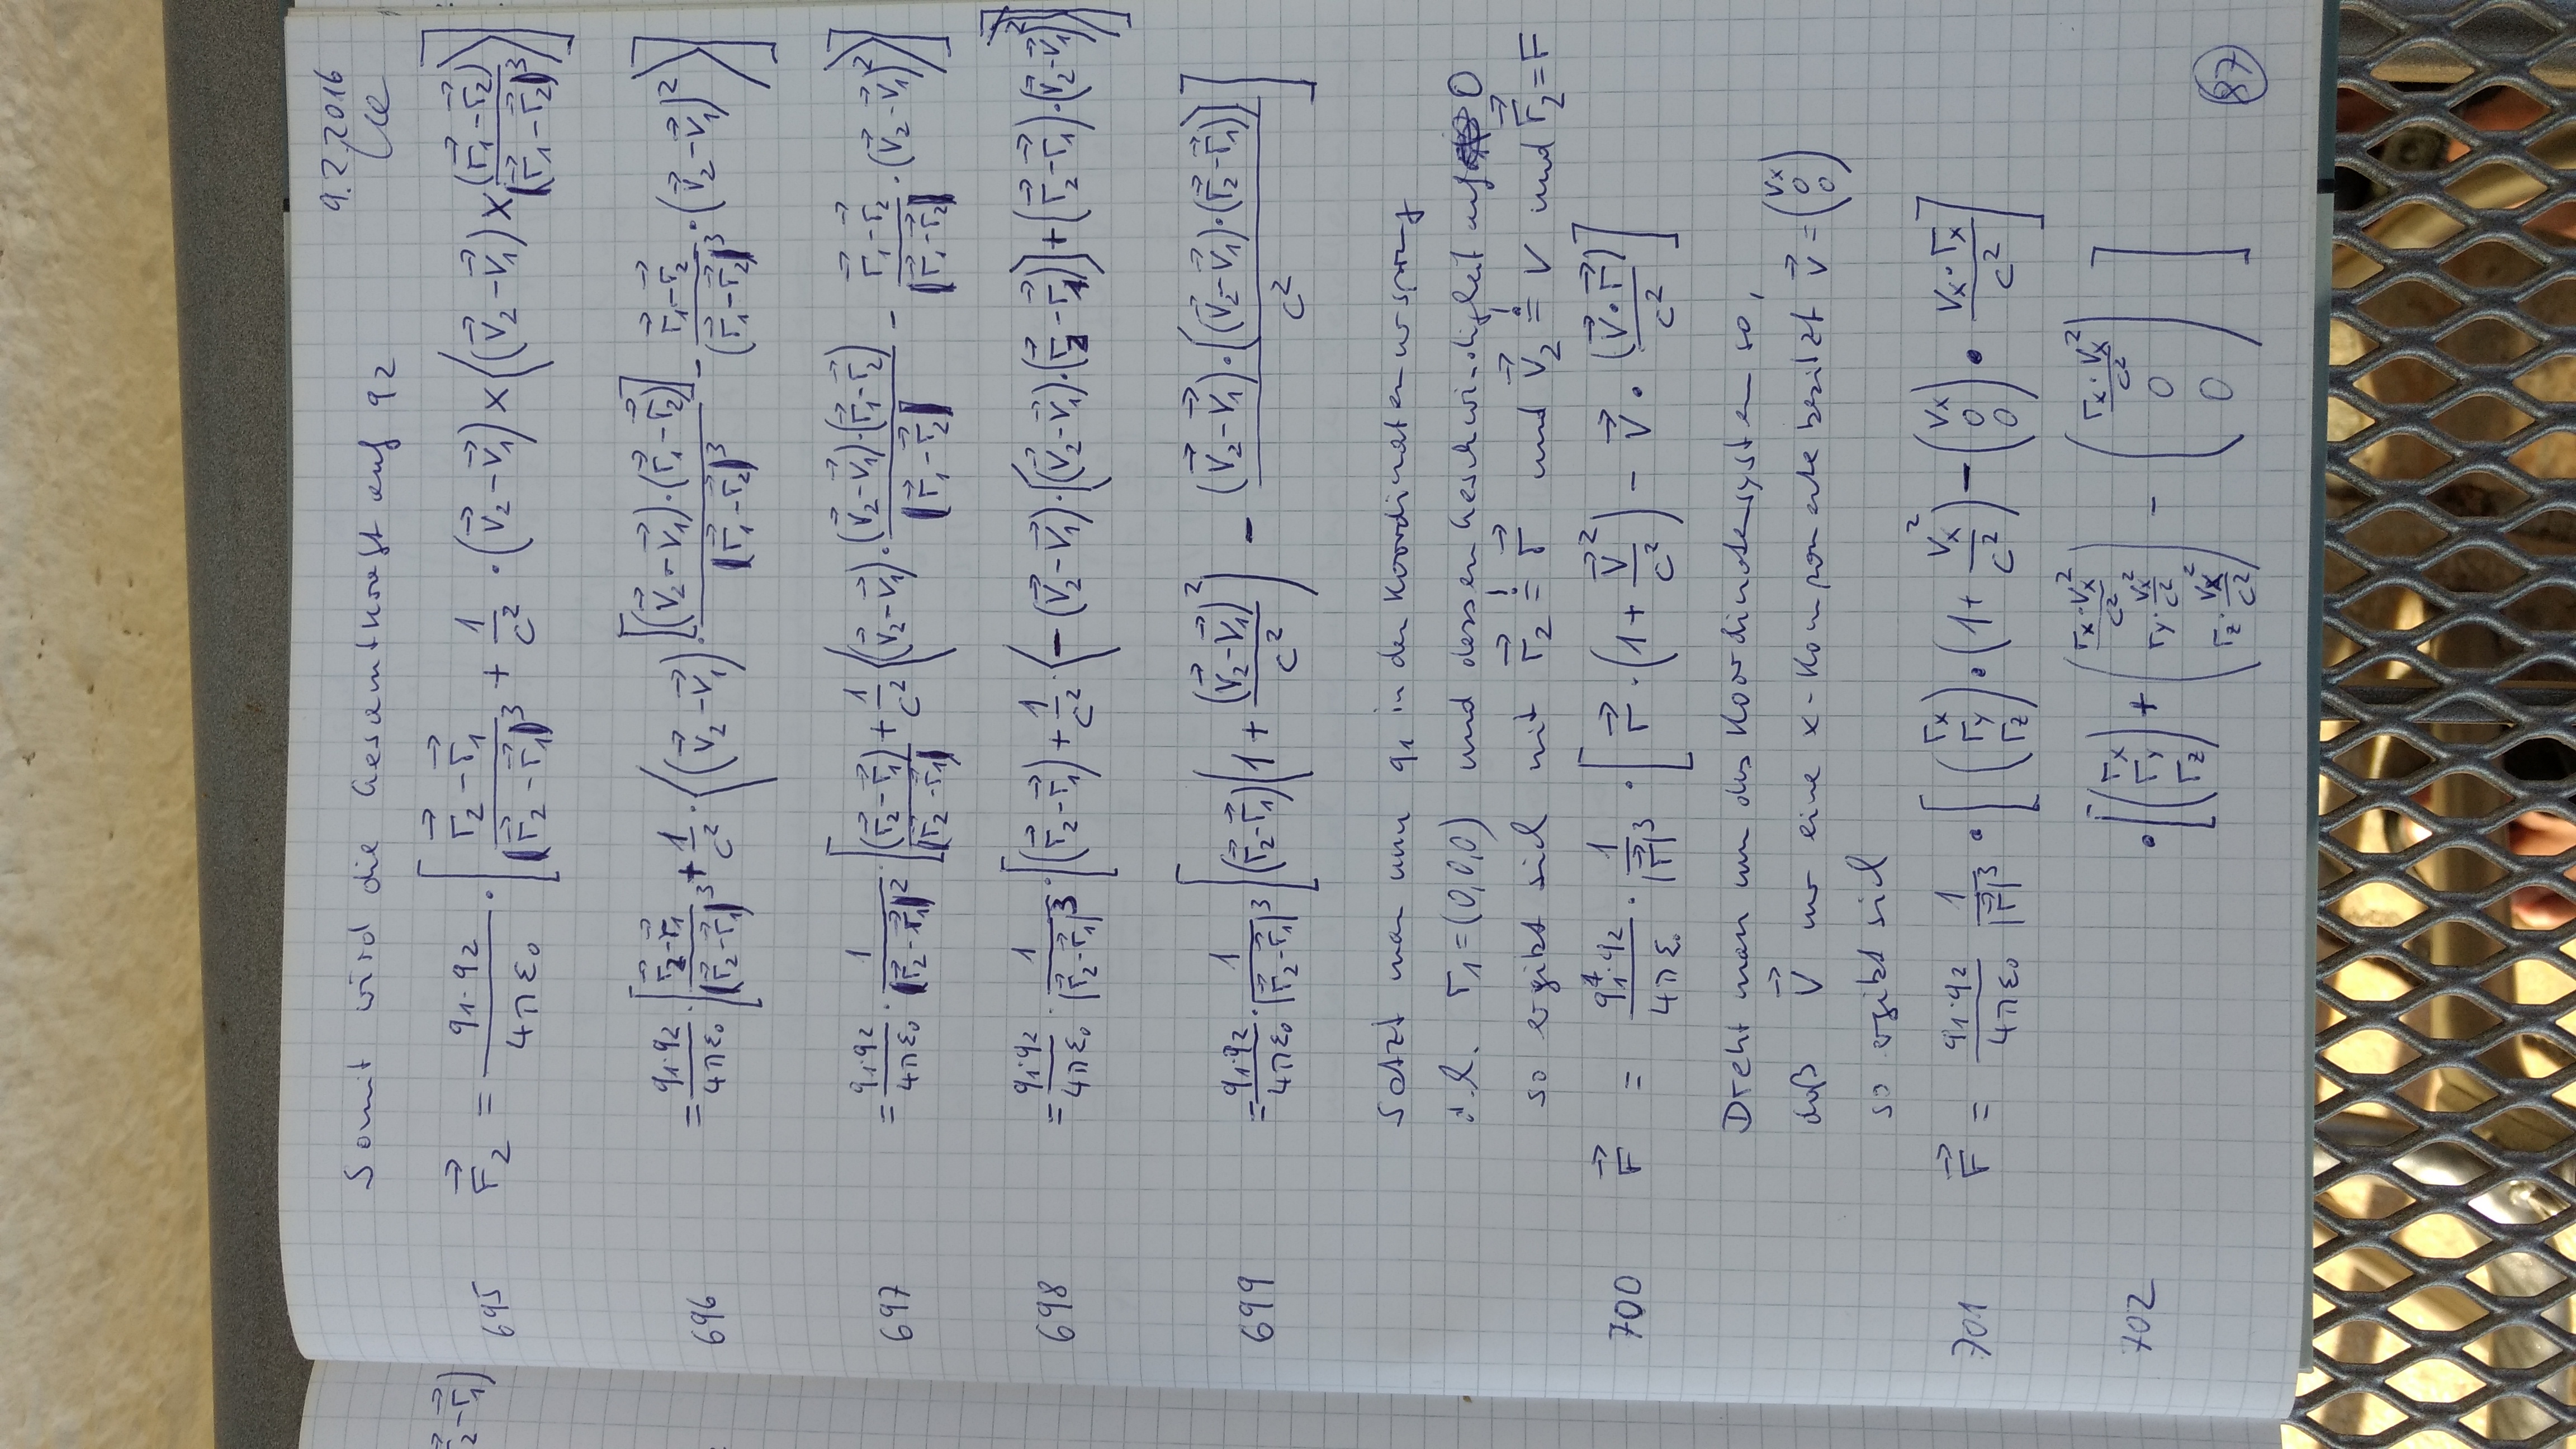 9.2.2016
Somit wird die Gesamtkraft auf q₂
695 F⃗₂ = q₁·q₂/4πε₀ · [ (r⃗₂-r⃗₁)/|r⃗₂-r⃗₁|³ + 1/c² · (v⃗₂-v⃗₁) × ((v⃗₂-v⃗₁) × (r⃗₁-r⃗₂)/|r⃗₁-r⃗₂|³) ]
696 = q₁·q₂/4πε₀ · [ (r⃗₂-r⃗₁)/|r⃗₂-r⃗₁|³ + 1/c² · ((v⃗₂-v⃗₁) · [(v⃗₂-v⃗₁)·(r⃗₁-r⃗₂)]/|r⃗₁-r⃗₂|³ - (r⃗₁-r⃗₂)/|r⃗₁-r⃗₂|³ · (v⃗₂-v⃗₁)²) ]
697 = q₁·q₂/4πε₀ · 1/|r⃗₂-r⃗₁|² · [ (r⃗₂-r⃗₁)/|r⃗₂-r⃗₁| + 1/c² ((v⃗₂-v⃗₁) · (v⃗₂-v⃗₁)·(r⃗₁-r⃗₂)/|r⃗₁-r⃗₂| - (r⃗₁-r⃗₂)/|r⃗₁-r⃗₂| · (v⃗₂-v⃗₁)²) ]
698 = q₁·q₂/4πε₀ · 1/|r⃗₂-r⃗₁|³ · [ (r⃗₂-r⃗₁) + 1/c² · (-(v⃗₂-v⃗₁) · [(v⃗₂-v⃗₁)·(r⃗₂-r⃗₁)] + (r⃗₂-r⃗₁)·(v⃗₂-v⃗₁)²) ]
699 = q₁·q₂/4πε₀ · 1/|r⃗₂-r⃗₁|³ [ (r⃗₂-r⃗₁) (1 + (v⃗₂-v⃗₁)²/c²) - (v⃗₂-v⃗₁)·((v⃗₂-v⃗₁)·(r⃗₂-r⃗₁))/c² ]
Setzt man nun q₁ in den Koordinatenursprung
d.h. r₁=(0,0,0) und dessen Geschwindigkeit auf 0
so ergibt sich mit r⃗₂ != r⃗ und v⃗₂ != v und F⃗₂=F
700 F⃗ = q₁·q₂/4πε₀ · 1/|r⃗|³ · [ r⃗ · (1 + v⃗²/c²) - v⃗ · (v⃗·r⃗)/c² ]
Dreht man nun das Koordinatensystem so,
daß v⃗ nur eine x-Komponente besitzt v⃗ = (vx 0 0)
so ergibt sich
701 F⃗ = q₁·q₂/4πε₀ 1/|r⃗|³ · [ (rx ry rz) · (1 + vx²/c²) - (vx 0 0) · vx·rx/c² ]
702 · [ (rx ry rz) + (rx·vx²/c² ry·vx²/c² rz·vx²/c²) - (rx·vx²/c² 0 0) ]
87